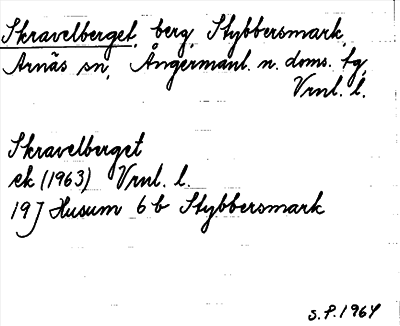 Skravelberget, berg, Stybbersmark,
Arnäs sn, Ångermanl. n. doms. tg,
Vrnl. l.
Skravelberget
ek (1963) Vrnl. l.
19J Husum 6b Stybbersmark
S.P. 1964